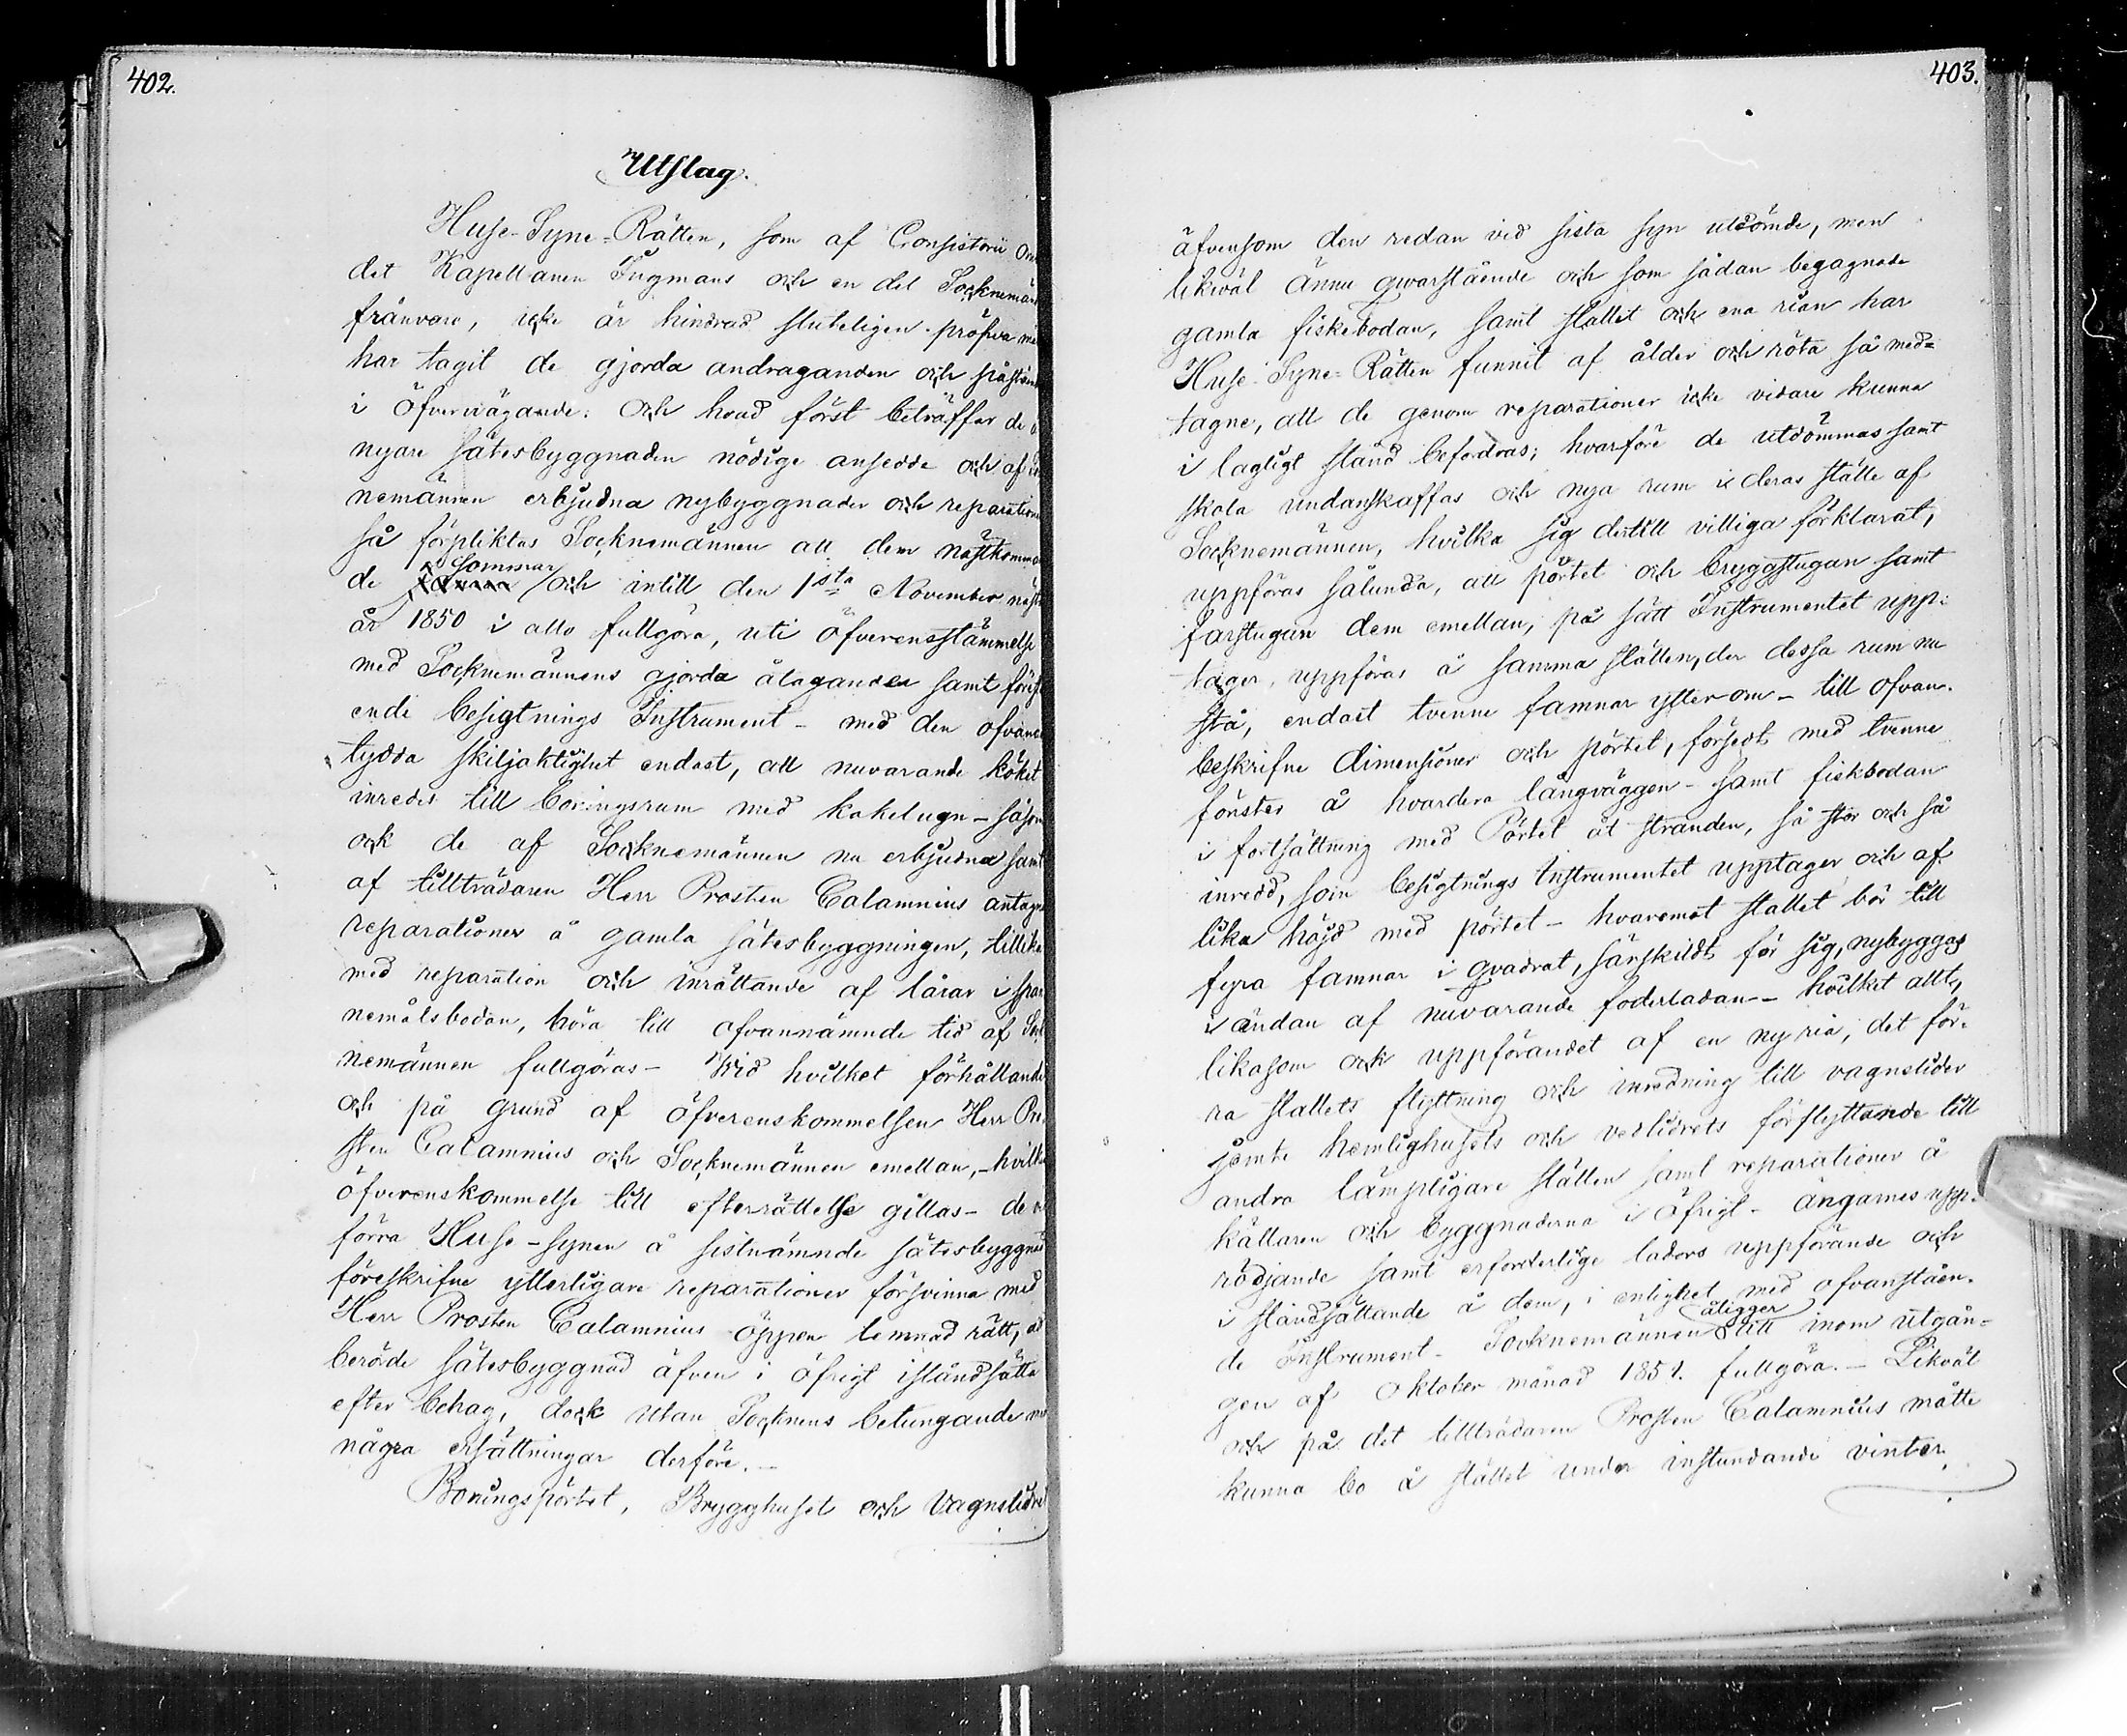 402.
Utslag.
Huse-Syne-Rätten, som af Consistorii Om
det Kapellanen Ingmans och en del Socknemän
frånvaro, icke är hindrad sluteligen pröfva
har tagit de gjorda andraganden och påstå
i öfvervägande: och hvad först beträffar de
nyare sätesbyggnaden nödige ansedde och af
nemännen erbjudna nybyggnader och reparation
så förpliktas Socknemännen att dem nästkomman
de sommar och intill den 1sta November näst
år 1850 i allo fullgöra, uti öfverensstämmelse
med Socknemännens gjorda åtaganden samt förestå
ende besigtnings Instrument - med den ofvan
tydda skiljaktighet endast, att nuvarande köket
inredes till boningsrum med kakelugn - såsom
ock de af Socknemännen nu erbjudna samt
af tillträdaren Herr Prosten Calamnius antagna
reparationer å gamla sätesbyggningen, tillika
med reparation och inrättande af lårar i span
nemålsbodan, böra till ofvannämnde tid af Sock
nemännen fullgöras - Wid hvilket förhållande
och på grund af öfverenskommelsen Herr Pro
sten Calamnius och Socknemännen emellan, - hvilken
öfverenskommelse till efterrättelse gillas - de
förra Huse-synen å sistnämnde sätesbyggnad
föreskrifne ytterligare reparationer försvinna med
Herr Prosten Calamnius öppen lemnad rätt, at
berörde sätesbyggnad äfven i öfrigt iståndsätta
efter behag, dock utan Socknens betungande med
några ersättningar derföre. -
Boningspörtet, Brygghuset och Vagnslidret
403.
äfvensom den redan vid sista syn utdömde, men
likväl ännu qvarstående och som sådan begagnade
gamla fiskebodan, samt stallet och ena rian har
Huse-Syne-Rätten funnit af ålder och röta så med=
tagne, att de genom reparationer icke vidare kunna
i lagligt stånd befordras; hvarföre de utdömmas samt
skola undanskaffas och nya rum i deras ställe af
Socknemännen, hvilka sig dertill villiga förklarat,
uppföras sålunda, att pörtet och bryggstugan samt
farstugan dem emellan, på sätt Instrumentet upp=
tager, uppföras å samma ställen, der dessa rum nu
stå, endast tvenne famnar ytter om - till ofvan-
beskrifne dimensioner och pörtet, försedt med tvenne
fönster å hvardera långväggen - samt fiskbodan
i fortsättning med Pörtet åt stranden, så stor och så
inredd, som besigtnings Instrumentet upptager och af
lika höjd med pörtet - hvaremot stallet bör till
fyra famnar i qvadrat, särskildt för sig, nybyggas
i ändan af nuvarande foderladan - hvilket allt,
likasom ock uppförandet af en ny ria, det för-
ra stallets flyttning och inredning till vagnslider
jemte hemlighusets och vedlidrets förflyttande till
andra lämpligare ställen samt reparationer å
källaren och byggnaderna i öfrigt - ängarnes upp-
rödjande samt erforderlige ladors uppförande och
i ståndsättande å dem, i enlighet med ofvanståen-
de Instrument - Socknemännen åligger till inom utgån=
gen af Oktober månad 1851. fullgöra. - Likväl
och på det tillträdaren Prosten Calamnius måtte
kunna bo å stället under instundande vinter,